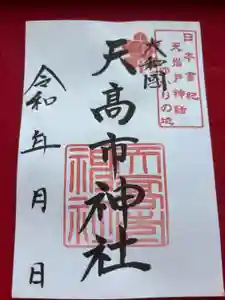 日本書紀
天岩戸神話
ゆかりの地
大和国
天高市神社
令和 年 月 日